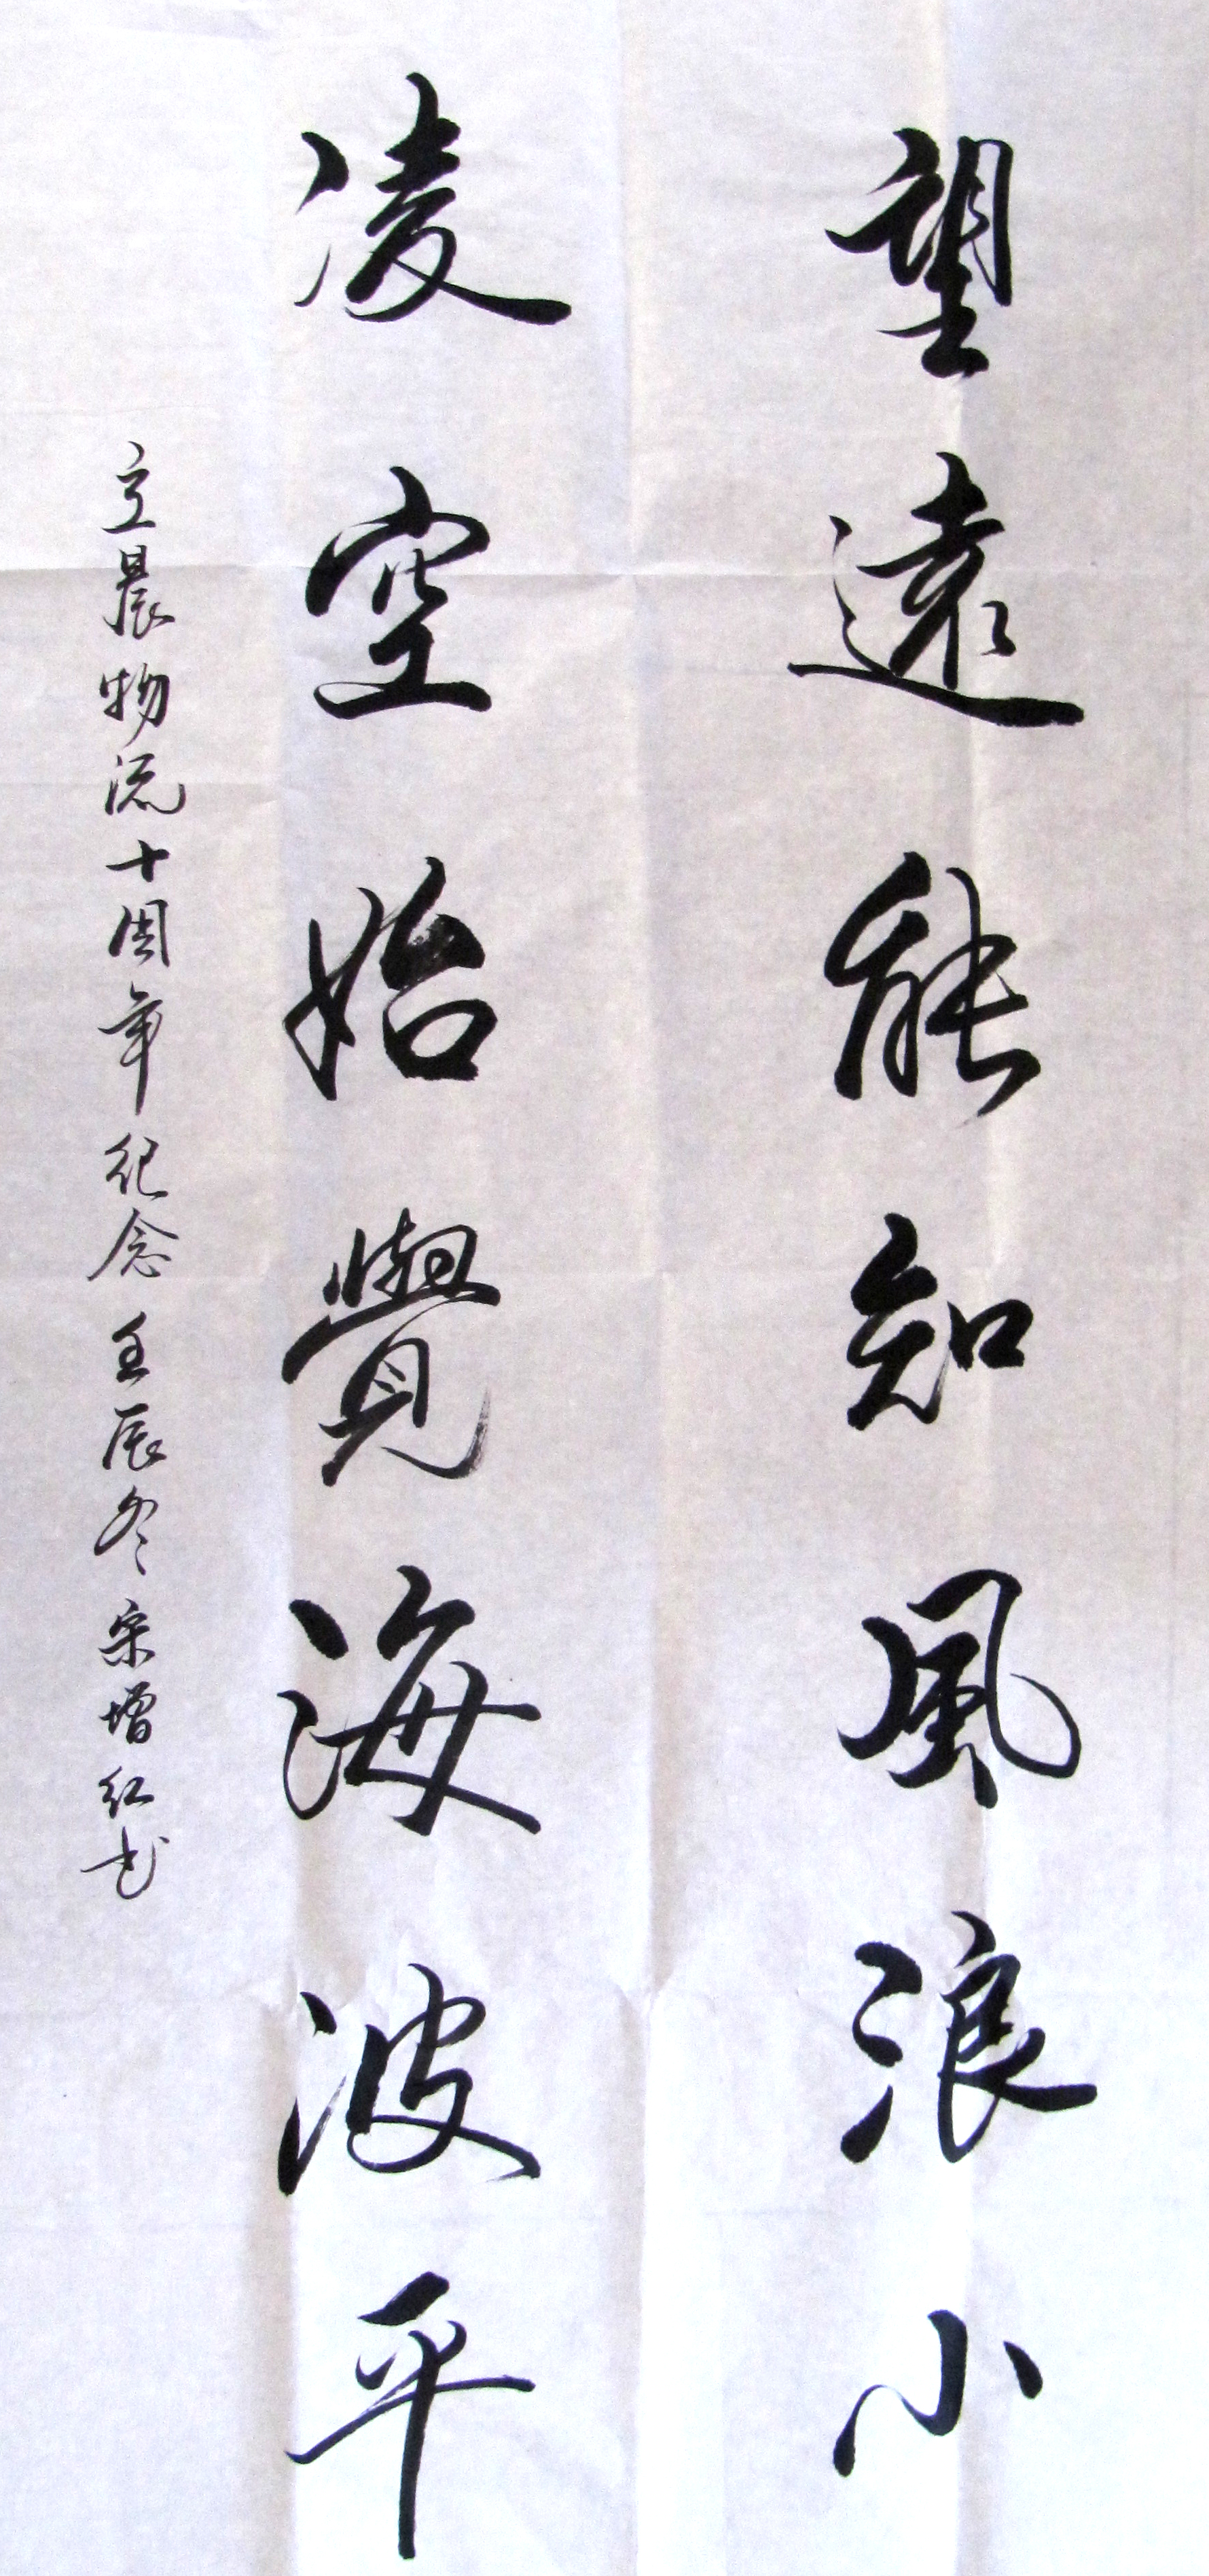 望遠能知風浪小
凌空始覺海波平
立晨物流十周年纪念 壬辰冬 宋增红书